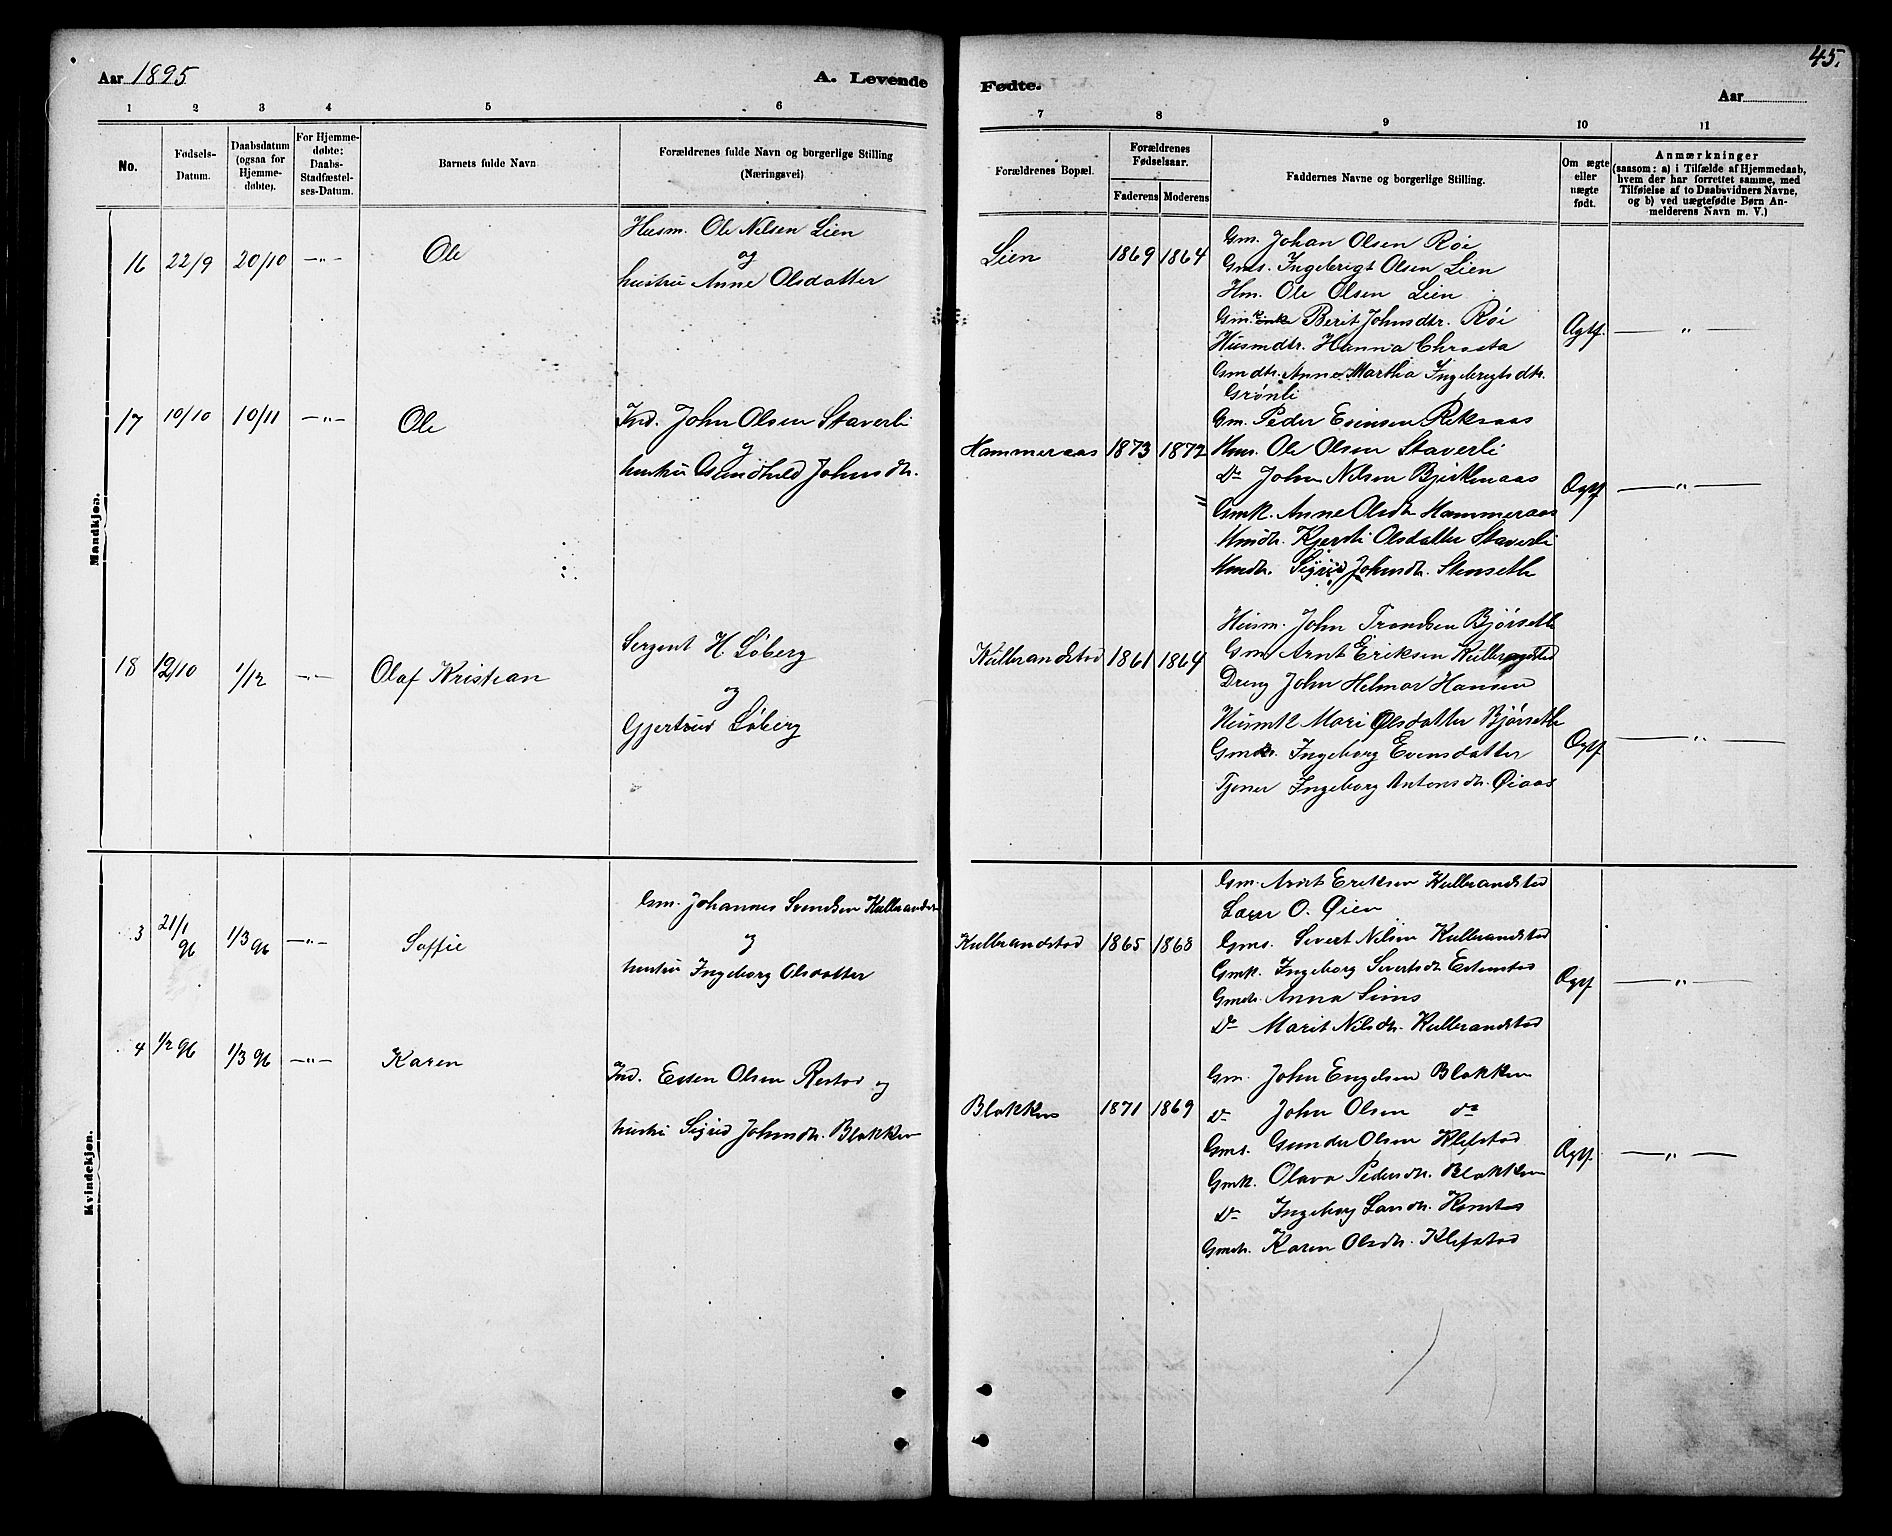 45.
Aar 1895 A. Levende Fødte. Aar
1 2 3 4 5 6 7 8 9 10 11
No. Fødsels-Datum. Daabsdatum (ogsaa for Hjemmedøbte). For Hjemmedøbte: Daabs-Stadfæstelses-Datum. Barnets fulde Navn Forældrenes fulde Navn og borgerlige Stilling (Næringsvei) Forældrenes Bopæl. Forældrenes Fødselsaar. Faderens Moderens Faddernes Navne og borgerlige Stilling. Om ægte eller uægte født. Anmærkninger (saasom: a) i Tilfælde af Hjemmedaab, hvem der har forrettet samme, med Tilføielse af to Daabsvidners Navne, og b) ved uægtefødte Børn Anmelderens Navn m. V.)
Mandkjøn.
16 22/9 20/10 —"— Ole
Husm. Ole Nilsen Lien
og
hustru Anne Olsdatter
Lien 1869 1864
Gm. Johan Olsen Røi
Gms. Ingebrigt Olsen Lien
Hm. Ole Olsen Lien
Gmk. Berit Johnsdtr. Røi
Husmdtr. Hanna
Gmdtr. Anne Martha Ingebrigtsdtr.
Grønli
Ægtf. —"—
17 10/10 10/11 —"— Ole
Ind. John Olsen Staverli
og
hustru Gundhild Johnsdtr.
Hammeraas 1873 1872
Gm. Peder Esensen
Hms. Ole Olsen Staverli
Do John Nilsen Bjerkenaas
Gmk. Anne Olsdtr Hammeraas
Hmdtr. Kjersti Olsdatter Staverli
Hmdtr. Sigrid Johnsdtr. Stenseth
Ægtf —"—
18 12/10 1/12 —"— Olaf Kristian
Sergent H. Løberg
og
Gjertrud Løberg
Kulbrandstad 1861 1864
Husm. John Trondsen Bjørseth
Gm. Arnt Eriksen Kulbrandstad
Dreng John Helmar Hansen
Husmk Mari Olsdatter Bjørseth
Gmdtr. Ingeborg Evensdatter
Tjener Ingeborg Antonsdtr. Øiaas
Ægtf —"—
Kvindekjøn.
3 21/1 96 1/3 96 —"— Soffie
Gm. Johannes Svendsen Kulbrandst
og
hustru Ingeborg Olsdatter
Kulbrandstad 1865 1868
Gm. Arnt Eriksen Kulbrandstad
Lars O. Øien
Gms. Sivert Nilsen Kulbrandstad
Gmk. Ingeborg Sivertsdtr Estenstad
Gmdtr. Anna Sims
Do Marit Nilsdtr. Kulbrandstad
Ægtf —"—
4 1/2 96 1/3 96 —"— Karen
Ind. Esten Olsen Restad og
hustru Sigrid Johnsdtr. Blakken
Blakken 1871 1869
Gm. John Engelsen Blakken
Do John Olsen do
Gms. Gunder Olsen Klefstad
Gmk. Olava Pedersdtr. Blakken
Do Ingeborg Larsdtr.
Gmdtr. Karen Olsdtr. Klefstad
Ægtf. —"—